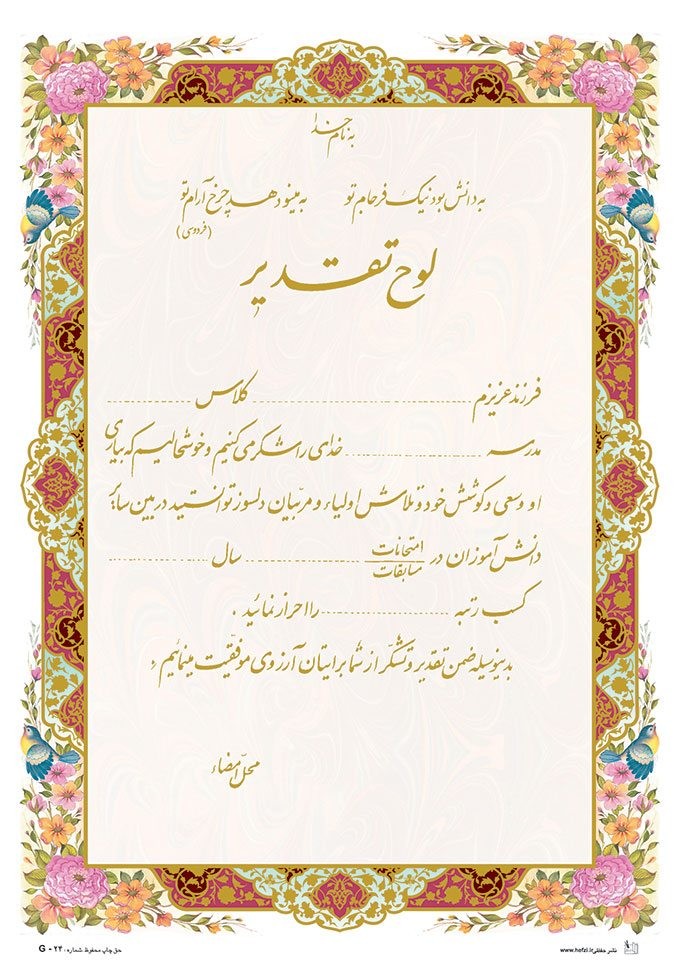 به نام خدا
به دانش بود نیک فرجام تو به مینو دهد چرخ آرام تو
(فردوسی)
لوح تقدیر
فرزند عزیزم .................... کلاس ....................
مدرسه .................... خدای را شکر می کنیم و خوشحالیم که بیاری
او وسعی و کوشش خود و تلاش اولیاء و مربّیان دلسوز توانستید در بین سایر
دانش آموزان در امتحانات .................... سال ....................
مسابقات
کسب رتبه .................... را احراز نمائید .
بدینوسیله ضمن تقدیر و تشکّر از شما برایتان آرزوی موفّقیت مینمائیم
محلّ امضاء
حق چاپ محفوظ .شماره : ۲۴ - G
ناشر حفظی www.hefzi.ir